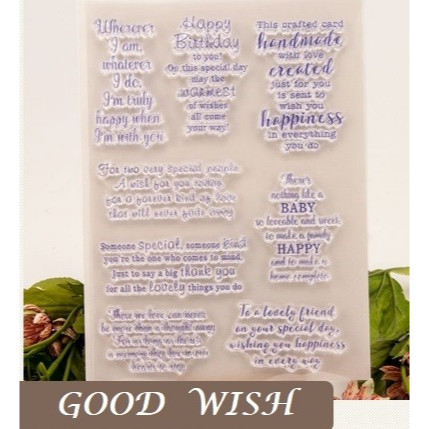 Wherever
I am,
whatever
I do,
I'm truly
happy when
I'm with you
Happy
Birthday
to you!
On this special day
may the
warmest
of wishes
all come
your way!
This crafted card
handmade
with love
created
just for you
is sent to
wish you
happiness
in everything
you do
For two very special people
A wish for you today
for a forever kind of love
that will never fade away
There's
nothing like a
BABY
so loveable and sweet
to make a family
HAPPY
and to make a
home complete
Someone special, someone kind
you're the one who comes to mind
Just to say a big thank you
for all the lovely things you do
Those we love can never
be more than a thought away
For as long as there's
a memory
To a lovely friend
on your special day,
wishing you happiness
in every way
GOOD WISH